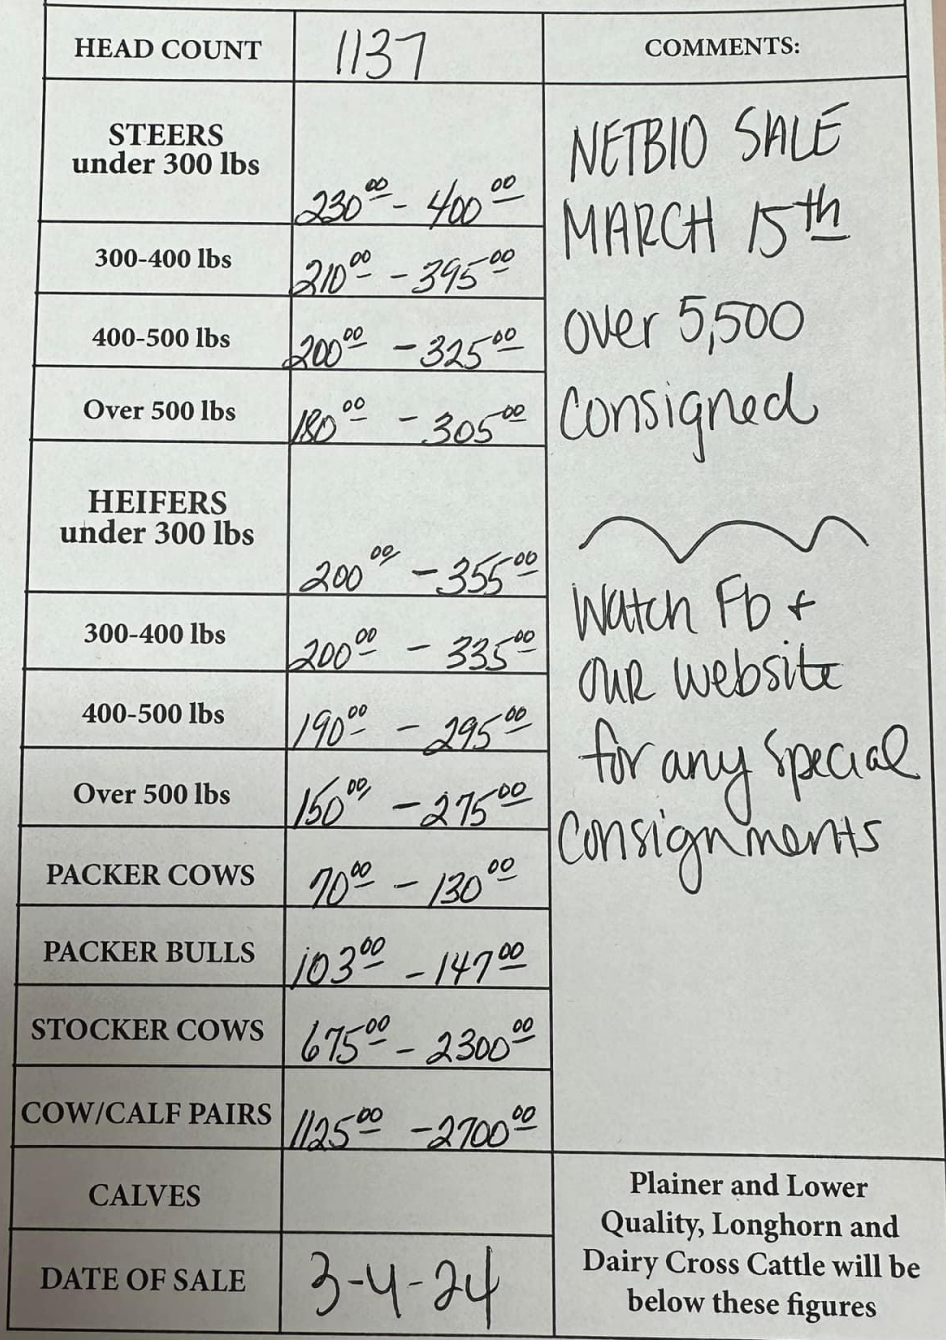 HEAD COUNT 1137 COMMENTS:
STEERS
under 300 lbs 230⁰⁰ - 400⁰⁰
300-400 lbs 210⁰⁰ - 395⁰⁰
400-500 lbs 200⁰⁰ - 325⁰⁰
Over 500 lbs 180⁰⁰ - 305⁰⁰
HEIFERS
under 300 lbs 200⁰⁰ - 355⁰⁰
300-400 lbs 200⁰⁰ - 335⁰⁰
400-500 lbs 190⁰⁰ - 295⁰⁰
Over 500 lbs 150⁰⁰ - 275⁰⁰
PACKER COWS 70⁰⁰ - 130⁰⁰
PACKER BULLS 103⁰⁰ - 147⁰⁰
STOCKER COWS 675⁰⁰ - 2300⁰⁰
COW/CALF PAIRS 1125⁰⁰ - 2700⁰⁰
CALVES
DATE OF SALE 3-4-24
NETBIO SALE
MARCH 15th
over 5,500
consigned
Watch Fb +
our website
for any special
consignments
Plainer and Lower
Quality, Longhorn and
Dairy Cross Cattle will be
below these figures